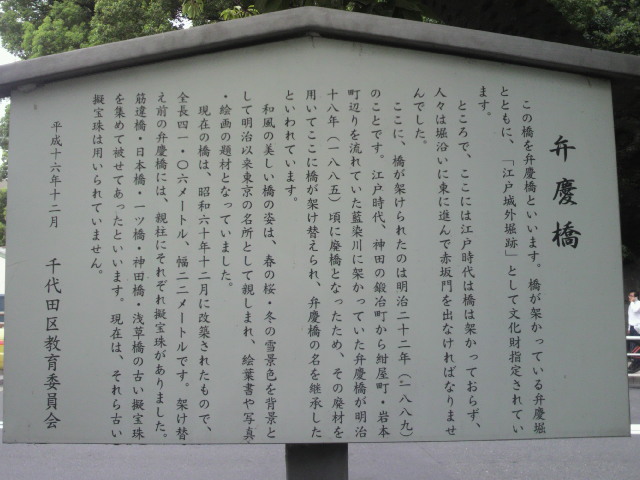 弁慶橋
この橋を弁慶橋といいます。橋が架かっている弁慶堀
とともに、「江戸城外堀跡」として文化財指定されてい
ます。
ところで、ここには江戸時代は橋は架かっておらず、
人々は堀沿いに東に進んで赤坂門を出なければなりませ
んでした。
ここに、橋が架けられたのは明治二十二年（一八八九）
のことです。江戸時代、神田の鍛冶町から紺屋町・岩本
町辺りを流れていた藍染川に架かっていた弁慶橋が明治
十八年（一八八五）頃に廃橋となったため、その廃材を
用いてここに橋が架け替えられ、弁慶橋の名を継承した
といわれています。
和風の美しい橋の姿は、春の桜・冬の雪景色を背景と
して明治以来東京の名所として親しまれ、絵葉書や写真
・絵画の題材となっていました。
現在の橋は、昭和六十年十二月に改築されたもので、
全長四一・〇六メートル、幅二二メートルです。架け替
え前の弁慶橋には、親柱にそれぞれ擬宝珠がありました。
筋違橋・日本橋・一ツ橋・神田橋・浅草橋の古い擬宝珠
を集めて被せてあったといいます。現在は、それら古い
擬宝珠は用いられていません。
平成十六年十二月
千代田区教育委員会